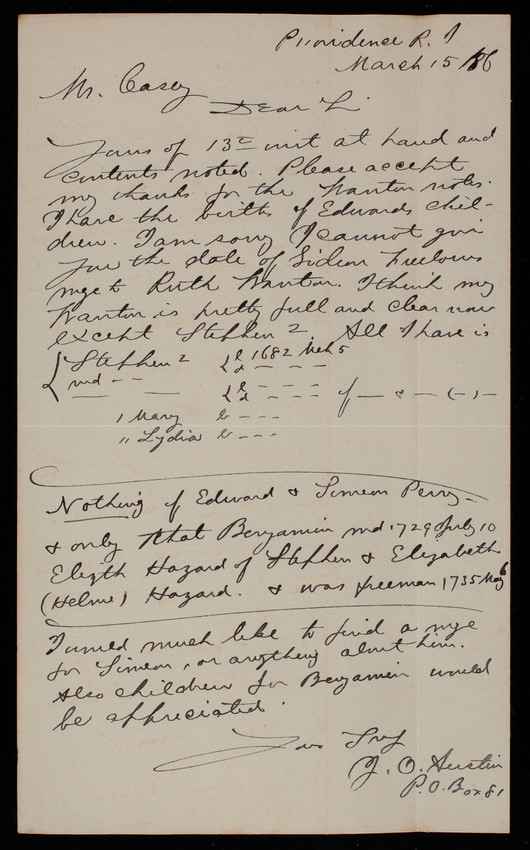 Providence R. I
March 15 / 86
Mr. Casey
Dear Sir
Yours of 13th inst at hand and
contents noted. Please accept
my thanks for the Wanton notes.
I have the births of Edwards chil-
dren. I am sorry I cannot give
you the date of Gideon Freeborns
mge to Ruth Wanton. I think my
Wanton is pretty full and clear now
except Stephen 2. All I have is
{ Stephen 2 { b 1682 Mch 5
d - - -
md - -
- - { b - - -
d - - - of — & — (-) -
1 Mary b - - -
" Lydia b - - -
Nothing of Edward & Simeon Perry -
& only that Benjamin md 1729 July 10
Elizth Hazard of Stephen & Elizabeth
(Helme) Hazard. & was freeman 1735 May 6
I would much like to find a mge
for Simeon, or anything about him.
Also children for Benjamin would
be appreciated.
Yours Truly
J. O. Austin
P. O. Box 81